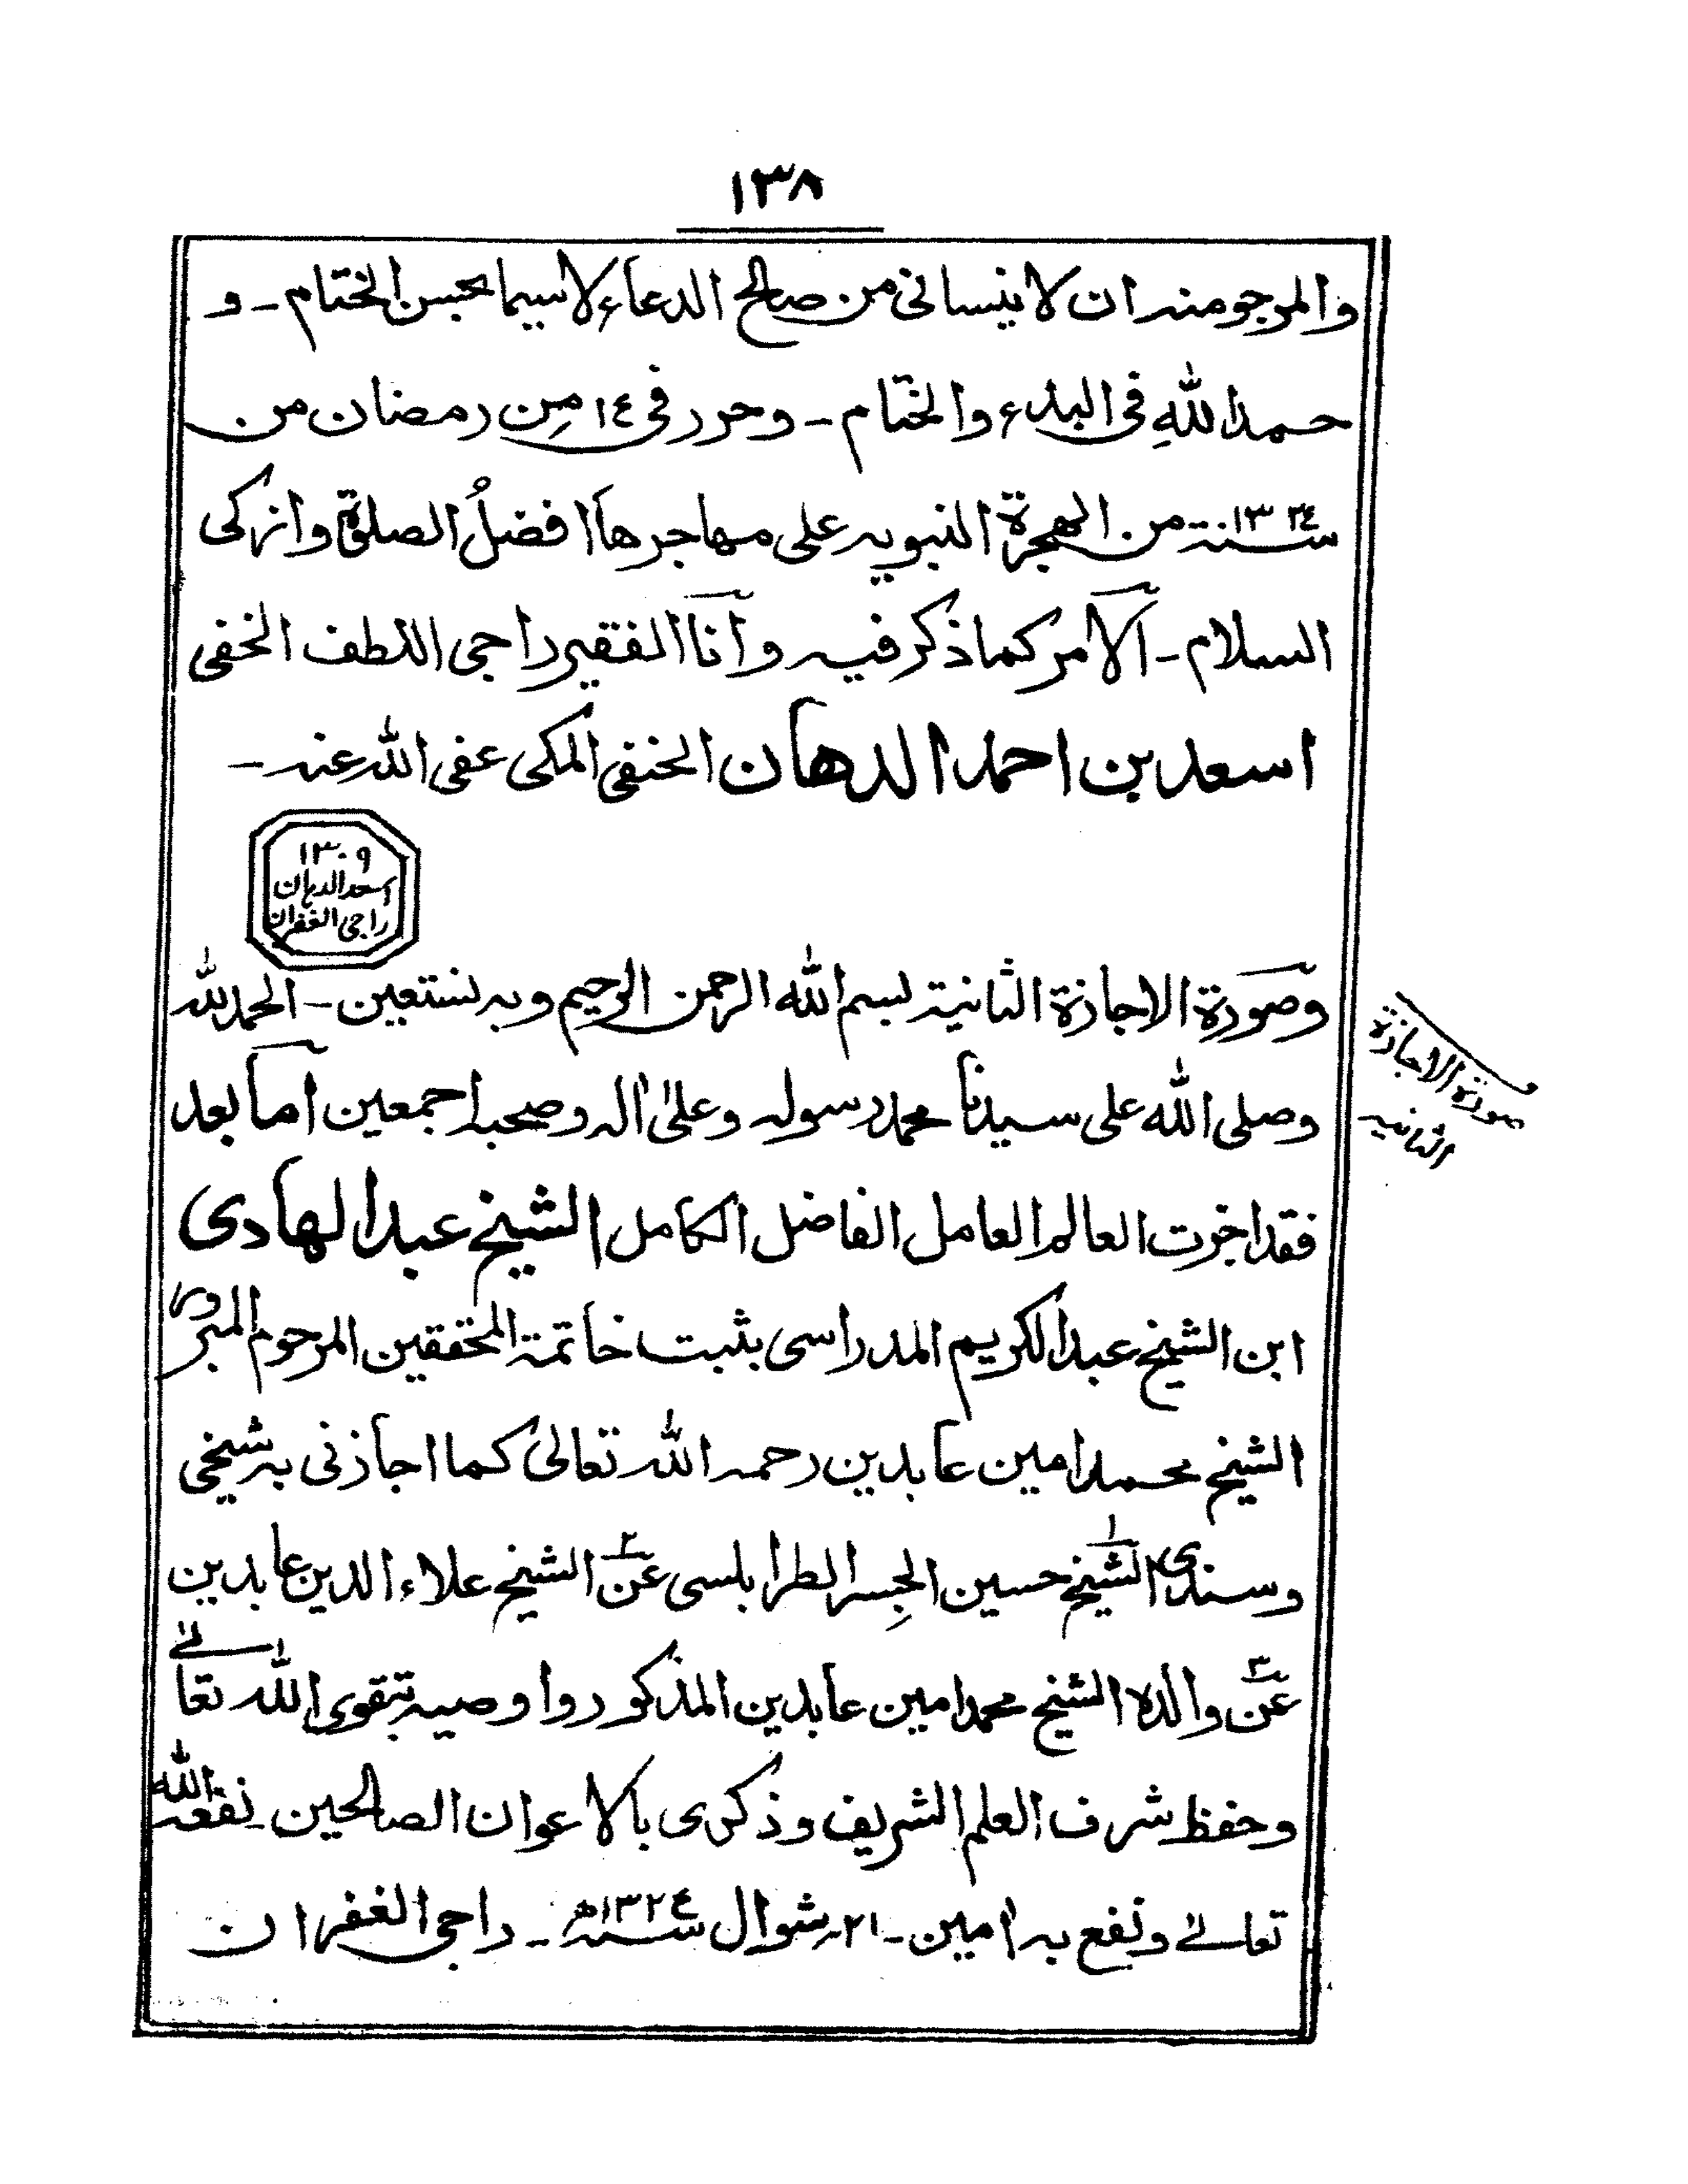 ١٣٨
والمرجو منه ان لا ينسانى من صالح الدعاء لاسيما بحسن الختام - و
حمد الله فى البدء والختام - وحرر فى ١٤ من رمضان من
سنة ١٣٢٤ من الهجرة النبويه على مهاجرها افضلُ الصلوٰة وازكى
السلام - الامر كما ذكر فيه وانا الفقير راجى اللطف الخفى
اسعد بن احمد الدهان الحنفى المكى عفى الله عنه -
١٣٠٩
اسعد الدهان
راجى الغفران
وصورة الاجازة الثانية بسم الله الرحمن الرحيم وبه نستعين - الحمد لله
صورة الاجازة
الثانيه
وصلى الله على سيدنا محمد رسوله وعلىٰ اٰله وصحبه اجمعين اما بعد
فقد اجزت العالم العامل الفاضل الكامل الشيخ عبد الهادى
ابن الشيخ عبد الكريم المدراسى بثبت خاتمة المحققين المرحوم المبرور
الشيخ محمد امين عابدين رحمه الله تعالىٰ كما اجازنى به شيخى
وسندى الشيخ١ حسين الجِسر الطرابلسى عن٢ الشيخ علاء الدين عابدين
عن٣ والده الشيخ محمد امين عابدين المذكور واوصيه بتقوى الله تعالے
وحفظ شرف العلم الشريف وذكرى بالاعوان الصالحين نفعه الله
تعالے ونفع به اٰمين - ٢١ شوال سنة ١٣٢٤ھ - راجى الغفران